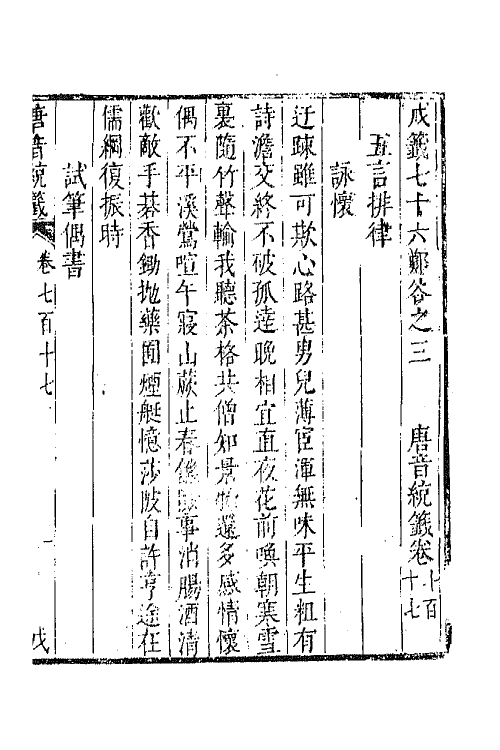 戊籤七十六鄭谷之三　唐音統籤卷七百十七
五言排律
詠懷
迂疎雖可欺心路甚男兒薄宦渾無味平生粗有
詩澹交終不破孤達晚相宜直夜花前喚朝寒雪
裏隨竹聲輸我聽茶格共僧知景物還多感情懷
偶不平溪鶯喧午寢山蕨止春饑事消腸酒清
歡敵手棊香鋤抛藥圃煙艇憶莎陂自許亨途在
儒綱復振時
試筆偶書
唐音統籤
卷七百十七
一
戊